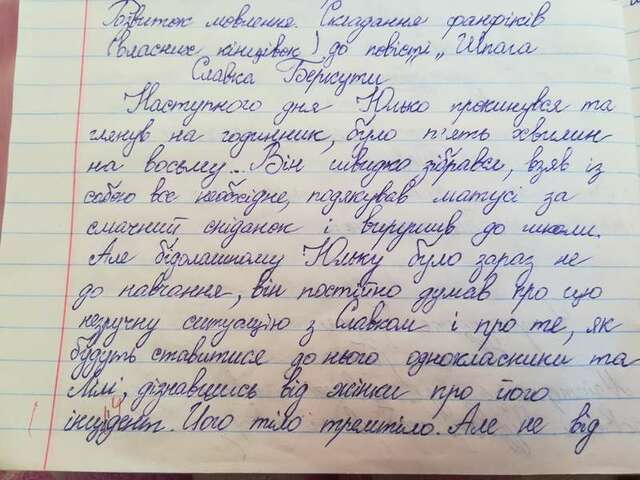 Розвиток мовлення. Складання фанфіків
(власних кінцівок) до повісті „Шпага
Славка Беркути
Наступного дня Юлько прокинувся та
глянув на годинник, було п'ять хвилин
на восьму... Він швидко зібрався, взяв із
собою все необхідне, подякував матусі за
смачний сніданок і вирушив до школи.
Але бідолашному Юльку було зараз не
до навчання, він постійно думав про цю
незручну ситуацію з Славком і про те, як
будуть ставитися до нього однокласники та
Лілі, дізнавшись від жінки про його
інцидент. Його тіло тремтіло. Але не від